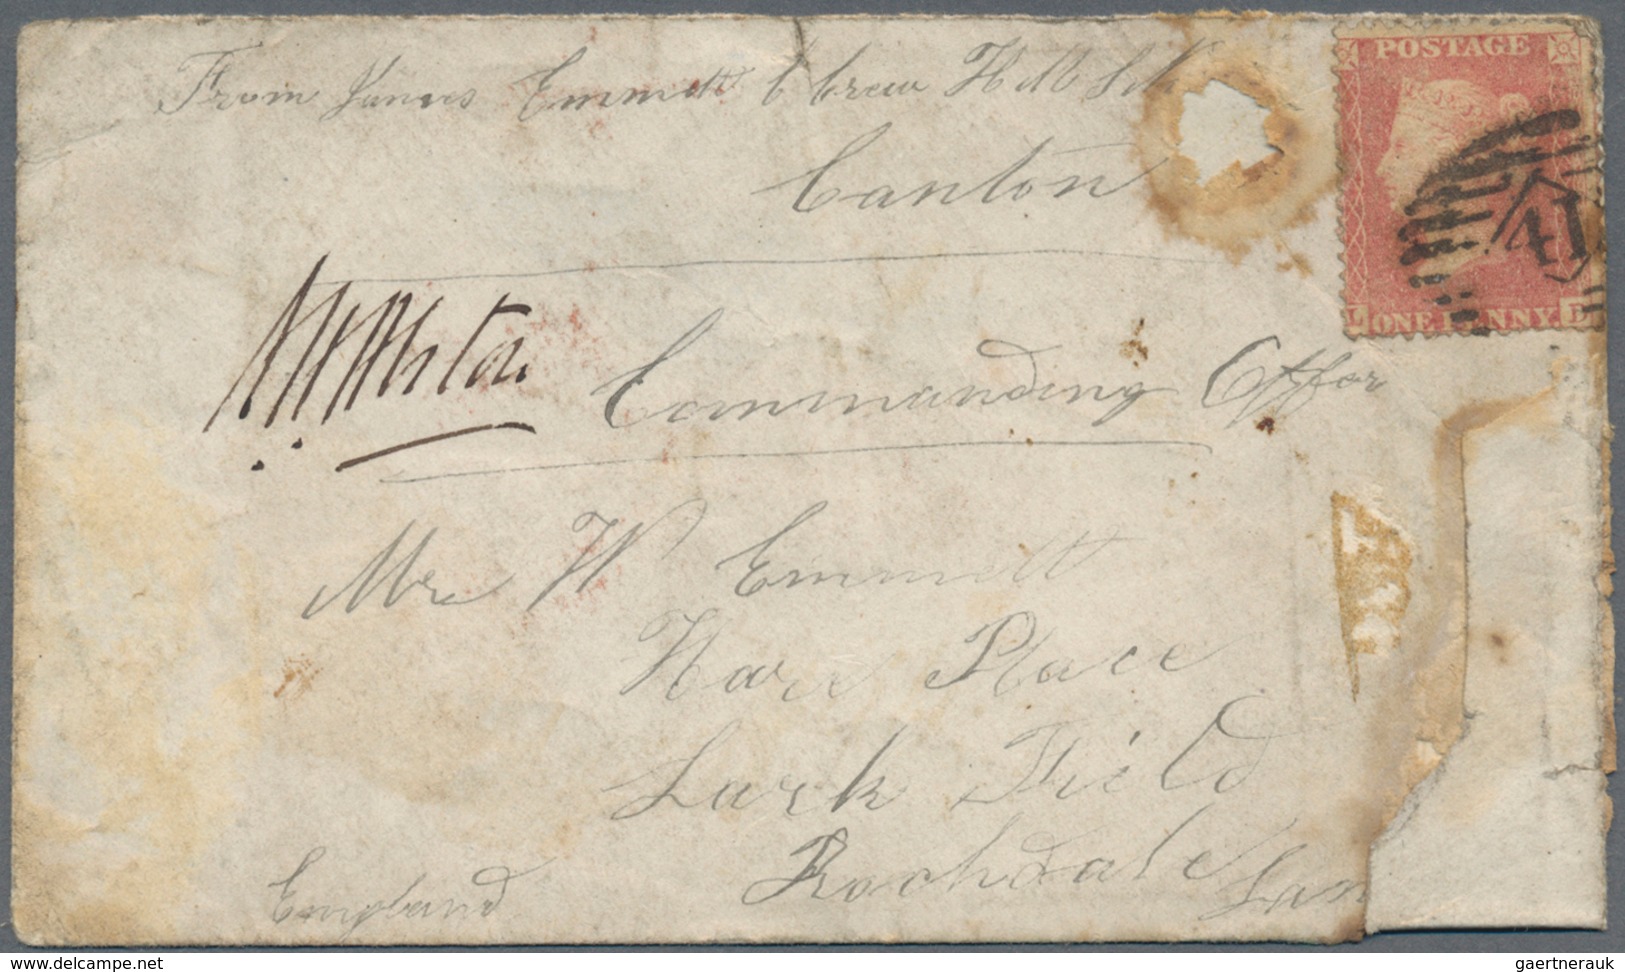 From James Emmett
Canton
POSTAGE
41
ONE PENNY
L
Commanding Offar
Mr W Emmett
Hare Place
Lark Field
Rochdale Lan
England
www.delcampe.net
gaertnerauk